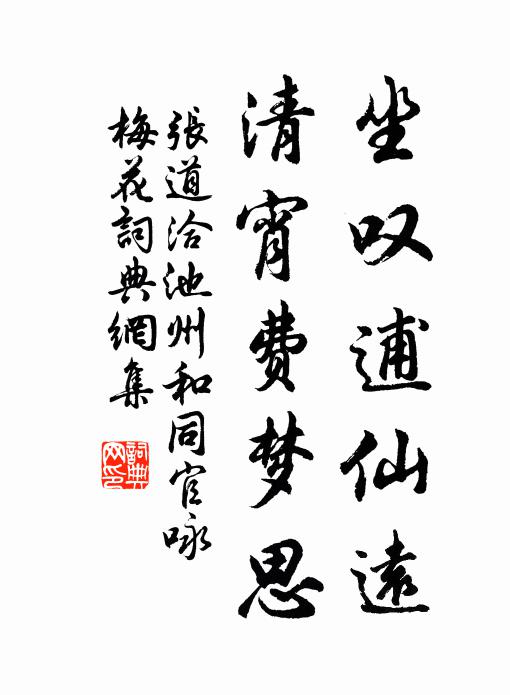 坐叹逋仙遠
清宵费梦思
張道洽池州和同官咏
梅花詞典網集
詞典
网印